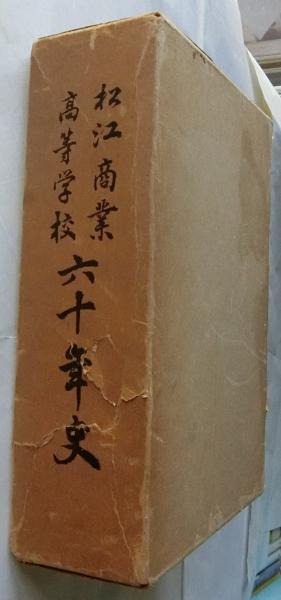 松江商業
高等学校
六十年史